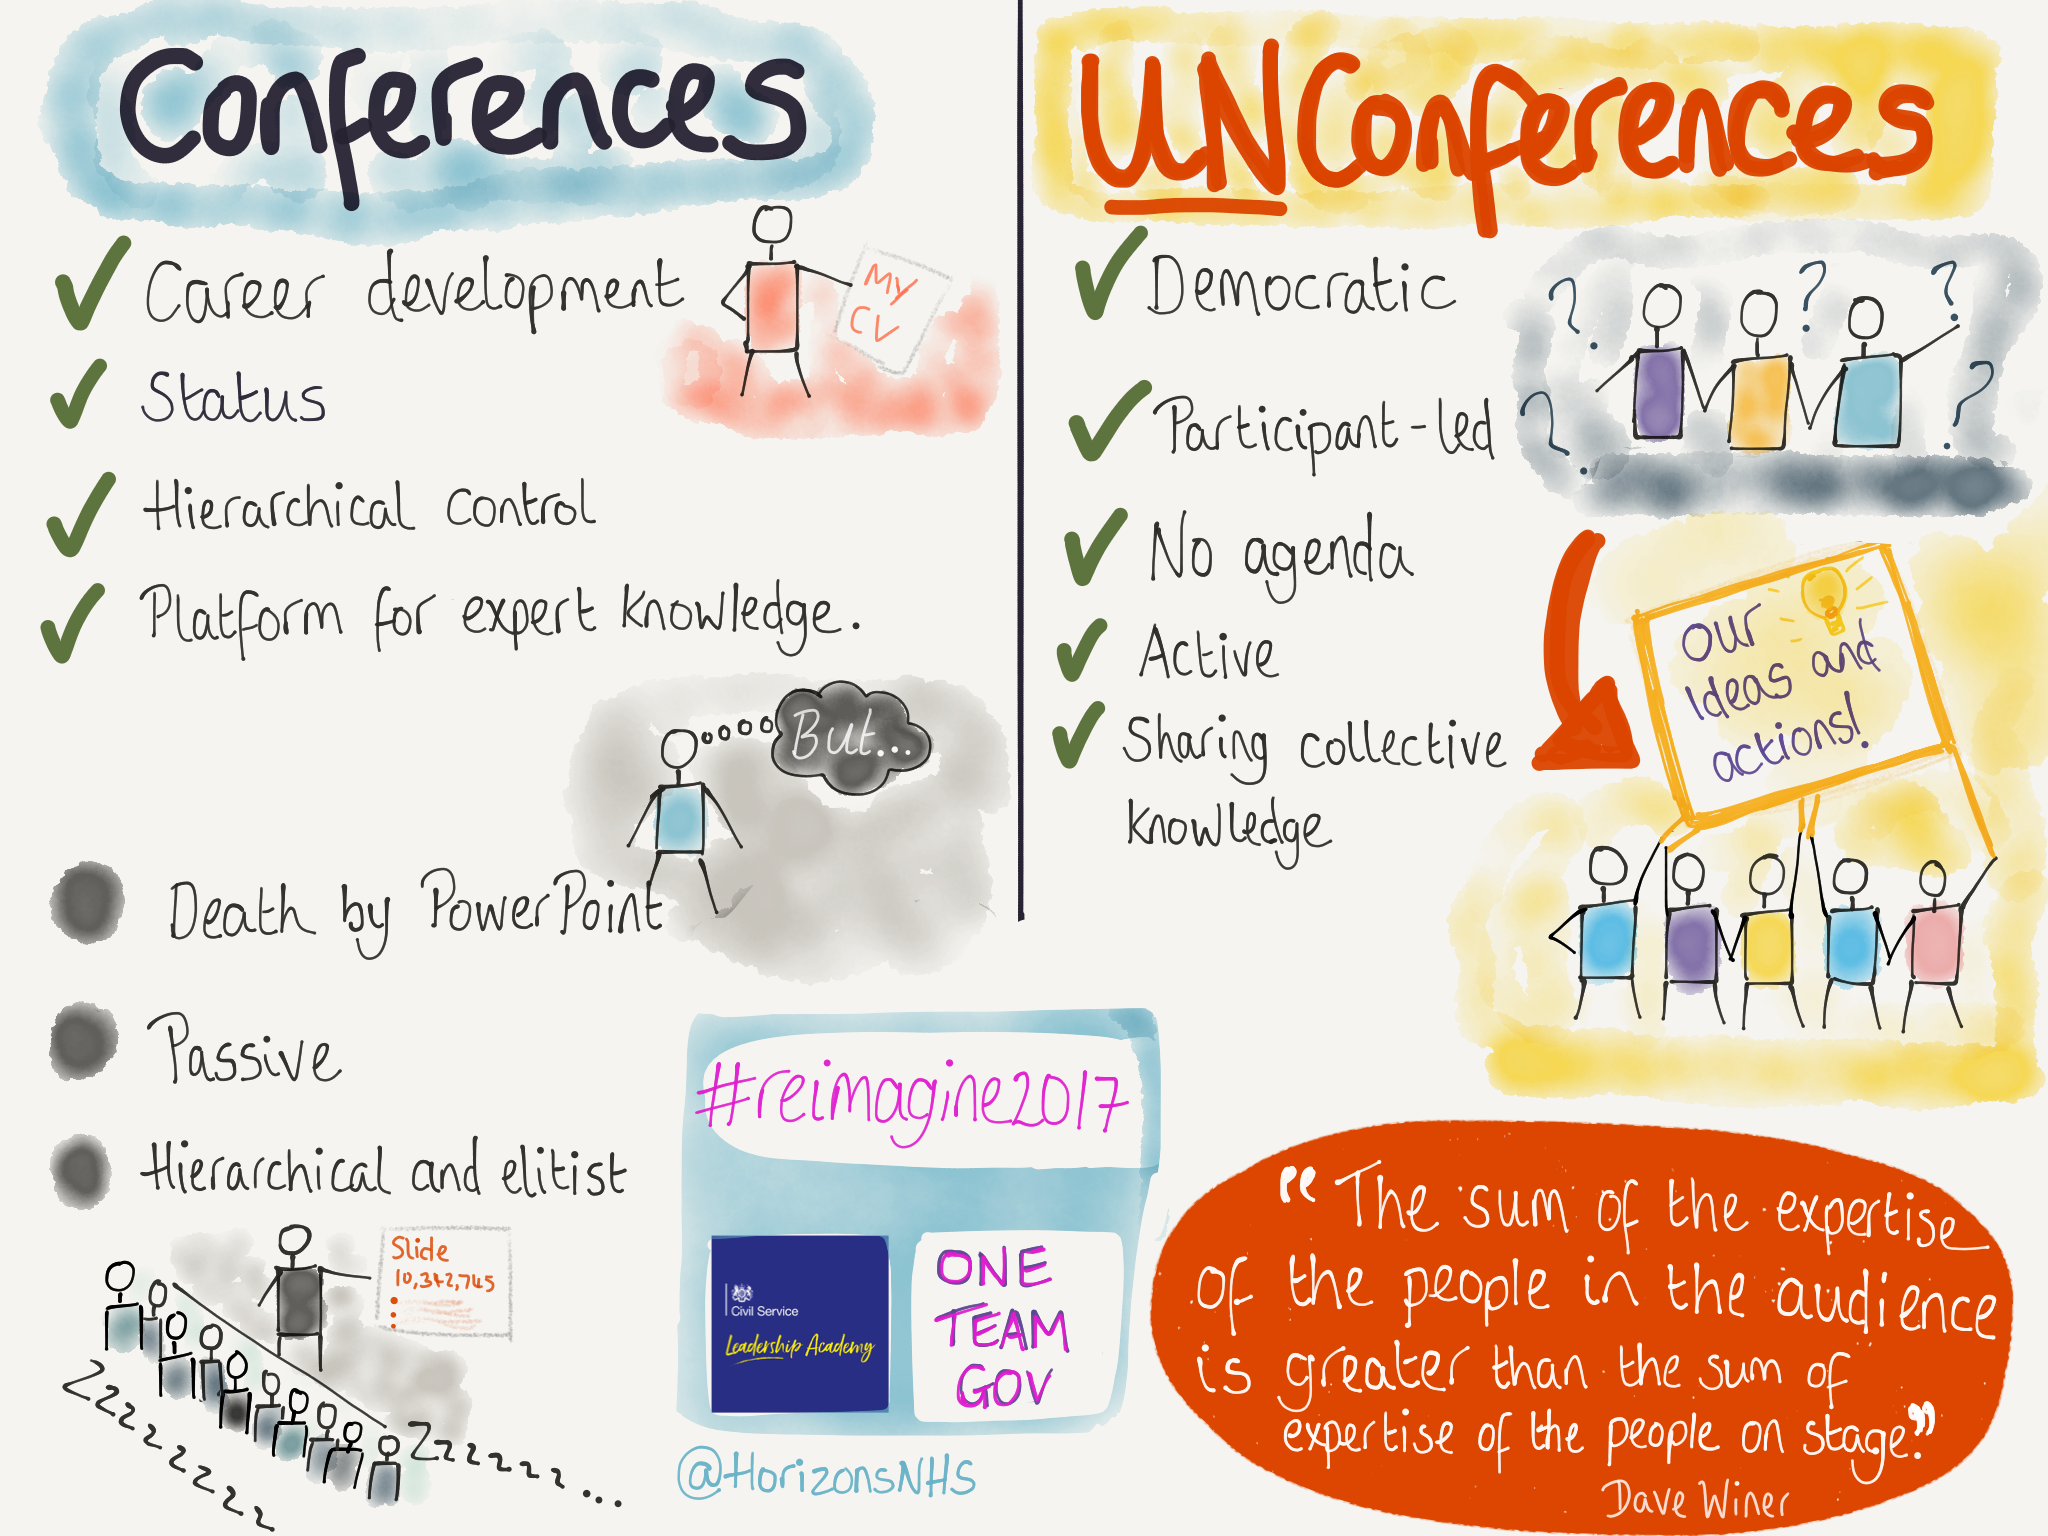 Conferences
Career development
MY
CV
Status
Hierarchical control
Platform for expert knowledge.
But...
Death by PowerPoint
Passive
Hierarchical and elitist
Slide
10,342,745
Zzzzzzzzz
Zzzzzz...
UNConferences
Democratic
Participant-led
No agenda
Active
Sharing collective
knowledge
? ? ? ? ?
Our
Ideas and
actions!
#reimagine2017
Civil Service
Leadership Academy
ONE
TEAM
GOV
@HorizonsNHS
"The sum of the expertise
of the people in the audience
is greater than the sum of
expertise of the people on stage."
Dave Winer